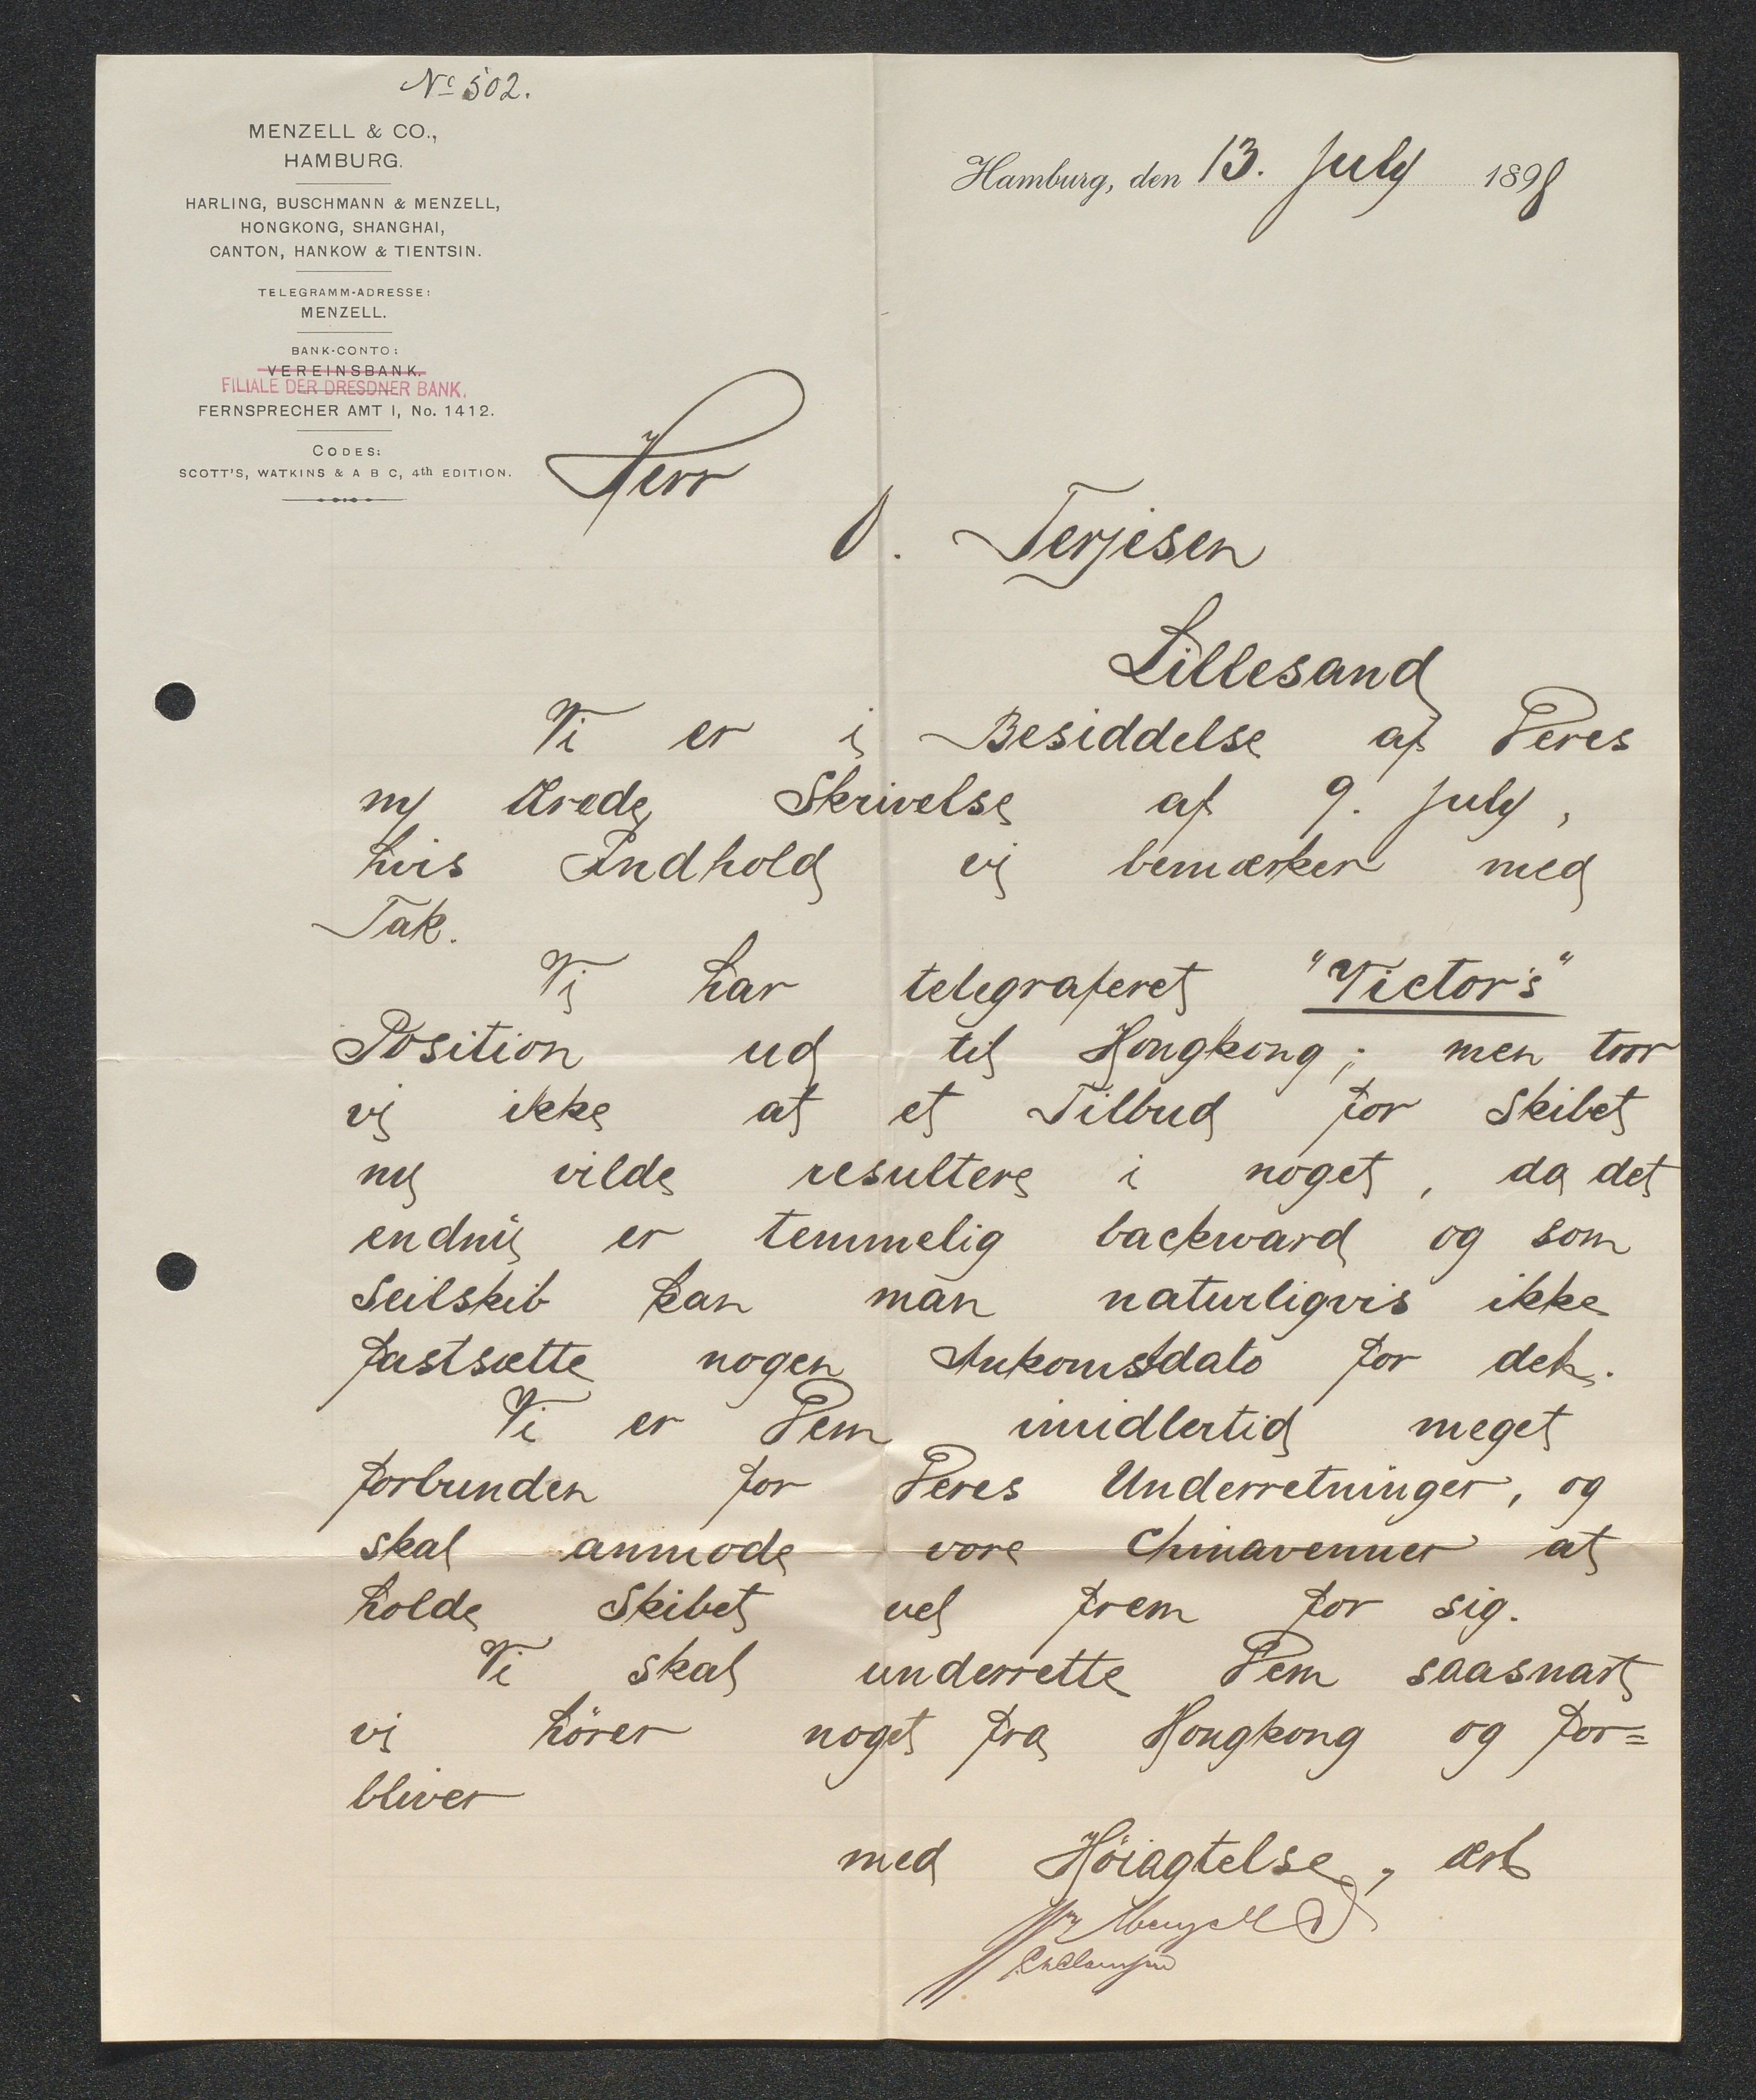 No 502.
MENZELL & CO.,
HAMBURG.
HARLING, BUSCHMANN & MENZELL,
HONGKONG, SHANGHAI,
CANTON, HANKOW & TIENTSIN.
TELEGRAMM-ADRESSE:
MENZELL.
BANK-CONTO:
VEREINSBANK.
FILIALE DER DRESDNER BANK.
FERNSPRECHER AMT I, No. 1412.
CODES:
SCOTT'S, WATKINS & A B C, 4th EDITION.
Hamburg, den 13. July 1898
Herr
O. Terjesen
Lillesand
Vi er i Besiddelse af Deres
m/ ærede Skrivelse af 9. July,
hvis Indhold vi bemærker med
Tak.
Vi har telegraferet "Victor's"
Position ud til Hongkong; men tror
vi ikke at et Tilbud for Skibet
nu vilde resultere i noget, da det
endnu er temmelig backward og som
Seilskib kan man naturligvis ikke
fastsætte nogen Ankomstdato for det.
Vi er Dem imidlertid meget
forbunden for Deres Underretninger, og
skal anmode vore Chinavenner at
holde Skibet vel frem for sig.
Vi skal underrette Dem saasnart
vi hörer noget fra Hongkong og for=
bliver
med Höiagtelse, ærb
Menzell